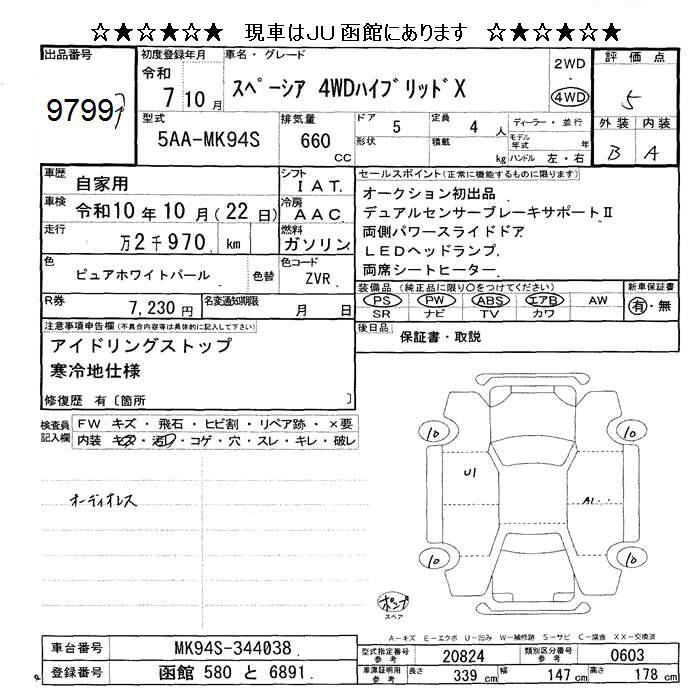 ☆★☆★☆★ 現車はJU函館にあります ☆★☆★☆★
出品番号 9799
初度登録年月 令和 7 10月
車名・グレード スペーシア 4WDハイブリッドX
2WD
4WD
評価点 5
外装 内装
B A
型式 5AA-MK94S
排気量 660 CC
ドア 5
形状
定員 4 人
積載 kg
ディーラー・並行
モデル年式 年
ハンドル 左・右
車歴 自家用
シフト IAT
車検 令和10年10月(22日)
冷房 AAC
走行 万2千970 km
燃料 ガソリン
色 ピュアホワイトパール 色替
色コード ZVR
R券 7,230円
名変通知期限 月 日
セールスポイント(正常に機能するものに限ります)
オークション初出品
デュアルセンサーブレーキサポートⅡ
両側パワースライドドア
LEDヘッドランプ
両席シートヒーター
装備品(純正品に限り○をつけてください)
PS PW ABS エアB AW
SR ナビ TV カワ
新車保証書
有・無
後日品 保証書・取説
注意事項申告欄(不具合内容等は具体的に記入して下さい)
アイドリングストップ
寒冷地仕様
修復歴 有〔箇所 〕
検査員記入欄
FW キズ・飛石・ヒビ割・リペア跡・×要
内装 キズ・汚れ・コゲ・穴・スレ・キレ・破レ
オーディオレス
10 10
U1 A1
10 10
ポンプ
スペア
A-キズ E-エクボ U-凹み W-補修跡 S-サビ C-腐食 XX-交換済
車台番号 MK94S-344038
登録番号 函館 580 と 6891
型式指定番号 参考 20824
類別区分番号 参考 0603
車庫証明用 参考 長さ 339 cm 幅 147 cm 高さ 178 cm